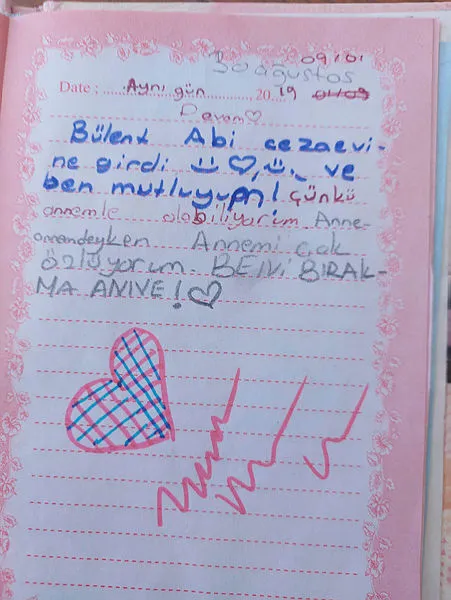 09:01
30 ağustos
Date : Aynı gün 20 19 01/09
Devam♡
Bülent Abi cezaevi-
ne girdi ve
ben mutluyum! çünkü
annemle olabiliyorum Anne-
annemdeyken Annemi çok
özlüyorum. BENİ BIRAK-
MA ANNE!♡